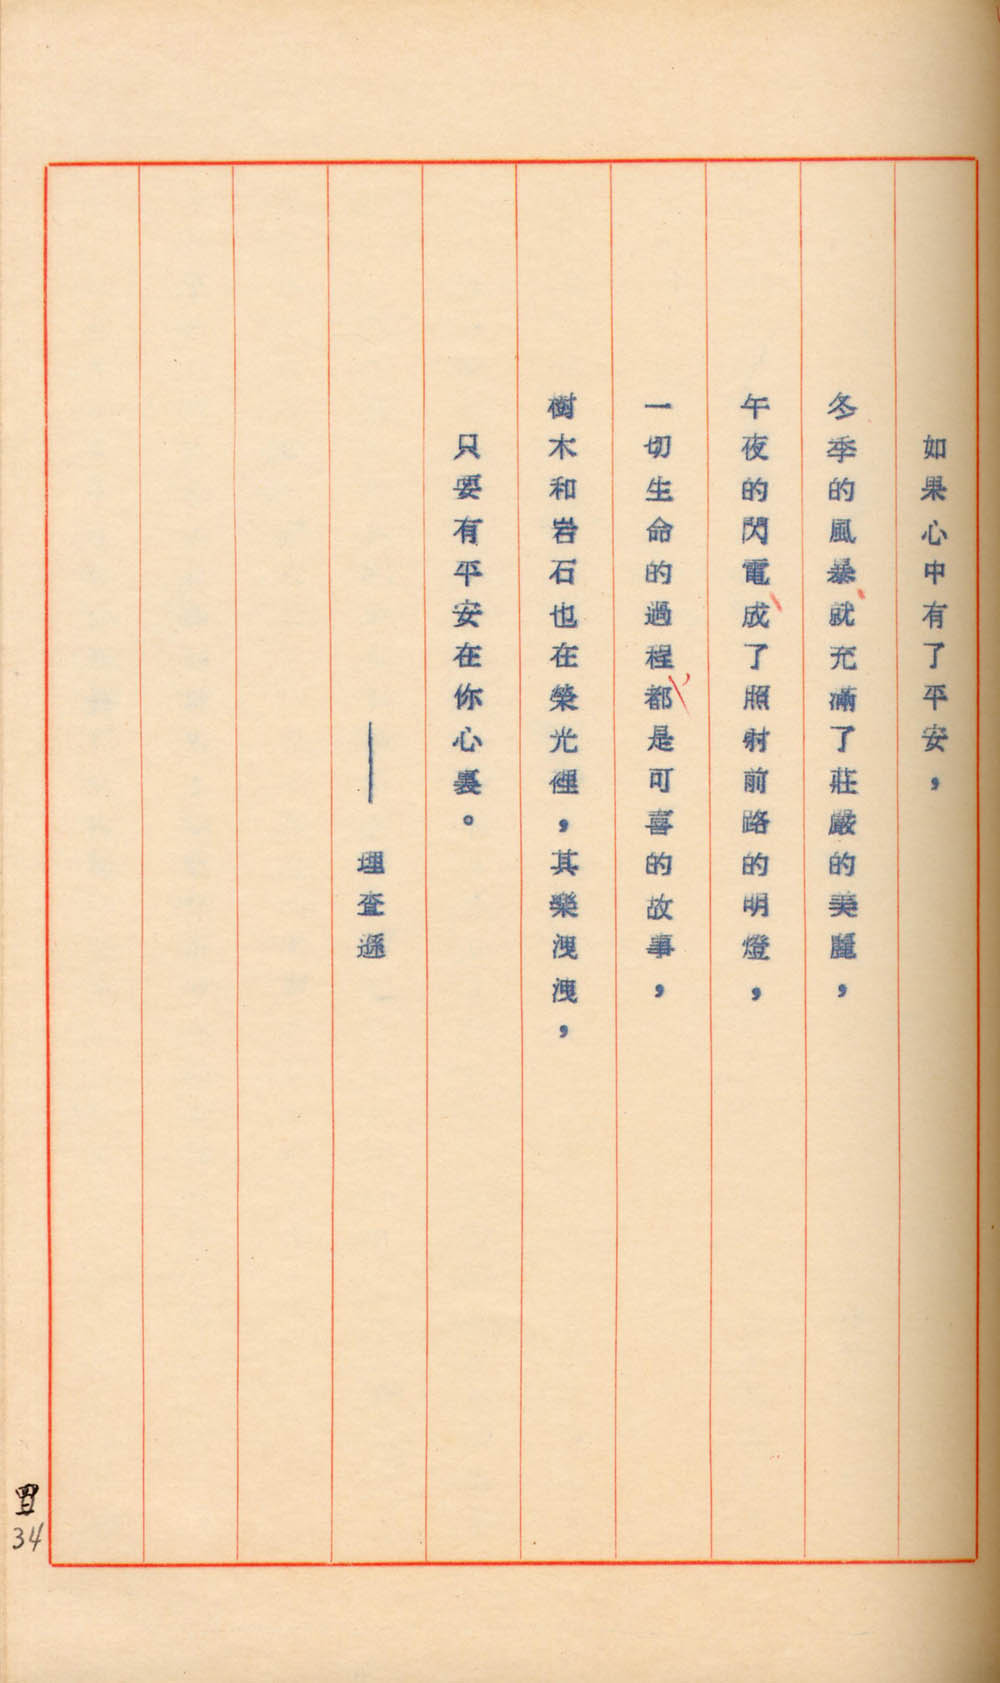 如果心中有了平安，
冬季的風暴就充滿了莊嚴的美麗，
午夜的閃電成了照射前路的明燈，
一切生命的過程都是可喜的故事，
樹木和岩石也在榮光裡，其樂洩洩，
只要有平安在你心裏。
——理查遜
34